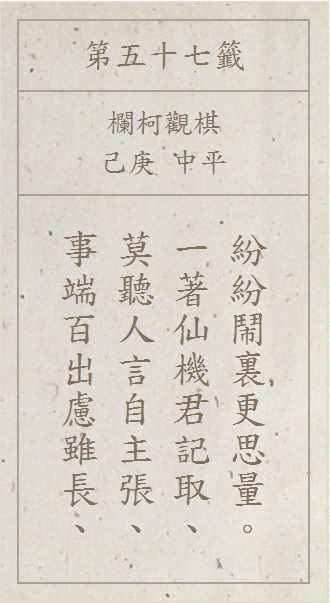 第五十七籤
欄柯觀棋
己庚 中平
事端百出慮雖長、
莫聽人言自主張、
一著仙機君記取、
紛紛鬧裏更思量。